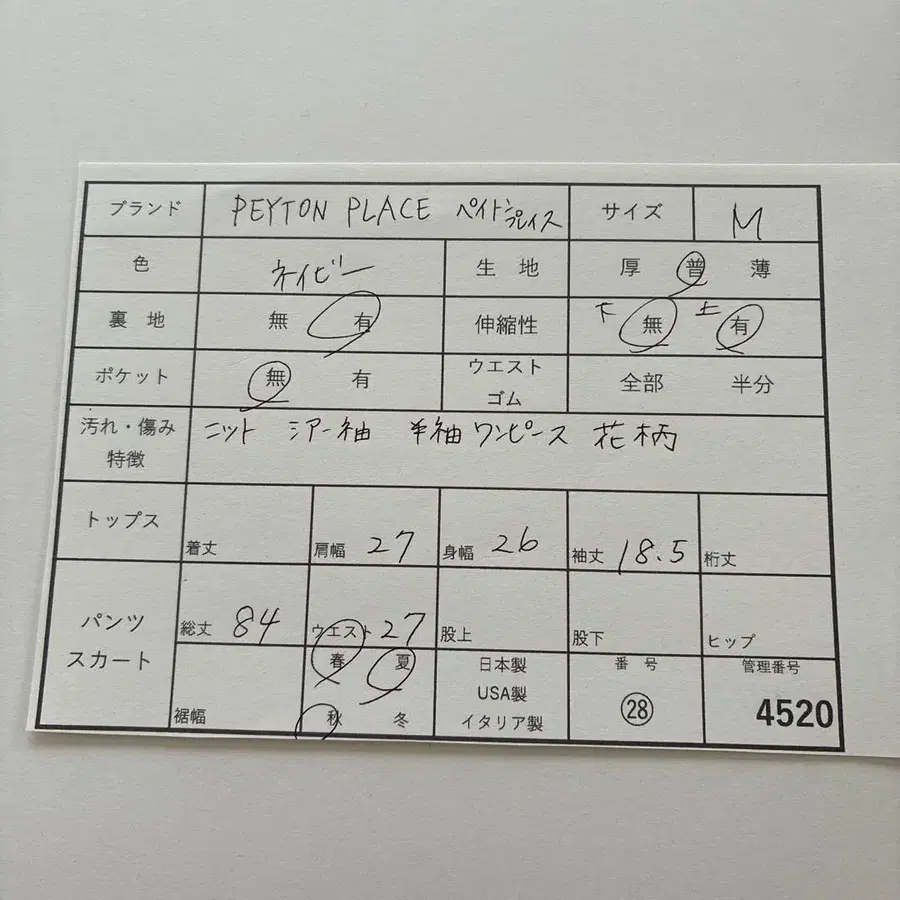 ブランド PEYTON PLACE ペイトンプレイス サイズ M
色 ネイビー 生地 厚 普 薄
裏地 無 有 伸縮性 下 無 上 有
ポケット 無 有 ウエストゴム 全部 半分
汚れ・傷み 特徴 ニット シアー袖 半袖ワンピース 花柄
トップス 着丈 肩幅 27 身幅 26 袖丈 18.5 裄丈
パンツ スカート 総丈 84 ウエスト 27 股上 股下 ヒップ
裾幅 春 夏 日本製 番号 管理番号
USA製
秋 冬 イタリア製 28 4520